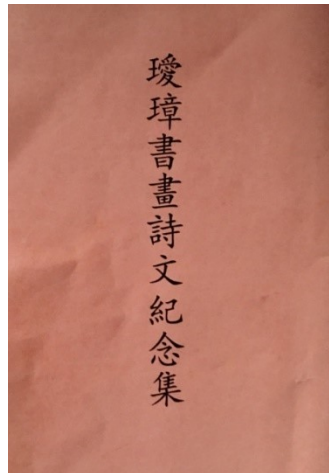 璦璋書畫詩文紀念集